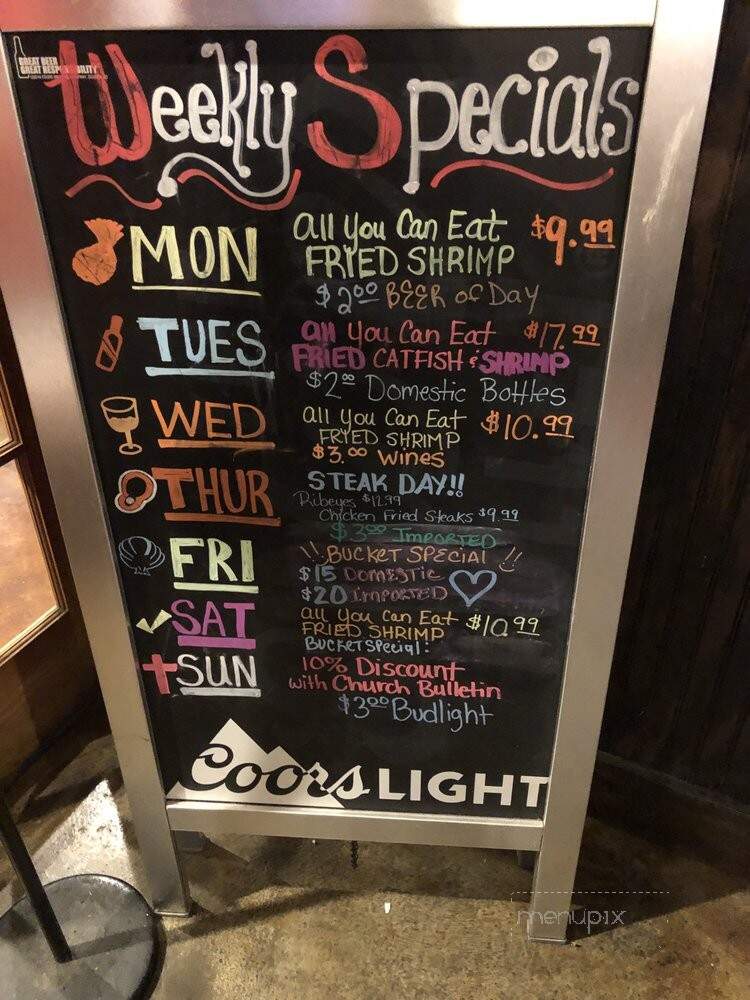 GREAT BEER
GREAT RESPONSIBILITY
Weekly Specials
MON
all You Can Eat $9.99
FRIED SHRIMP
$2.00 BEER of Day
TUES
all You Can Eat $17.99
FRIED CATFISH & SHRIMP
$2.00 Domestic Bottles
WED
all You Can Eat $10.99
FRIED SHRIMP
$3.00 Wines
THUR
STEAK DAY!!
Ribeyes $12.99
Chicken Fried Steaks $9.99
$3.00 IMPORTED
FRI
!! BUCKET SPECIAL !!
$15 DOMESTIC
$20 IMPORTED
SAT
all You Can Eat $10.99
FRIED SHRIMP
BUCKET Special:
SUN
10% Discount
with Church Bulletin
$3.00 Budlight
Coors LIGHT
menupix